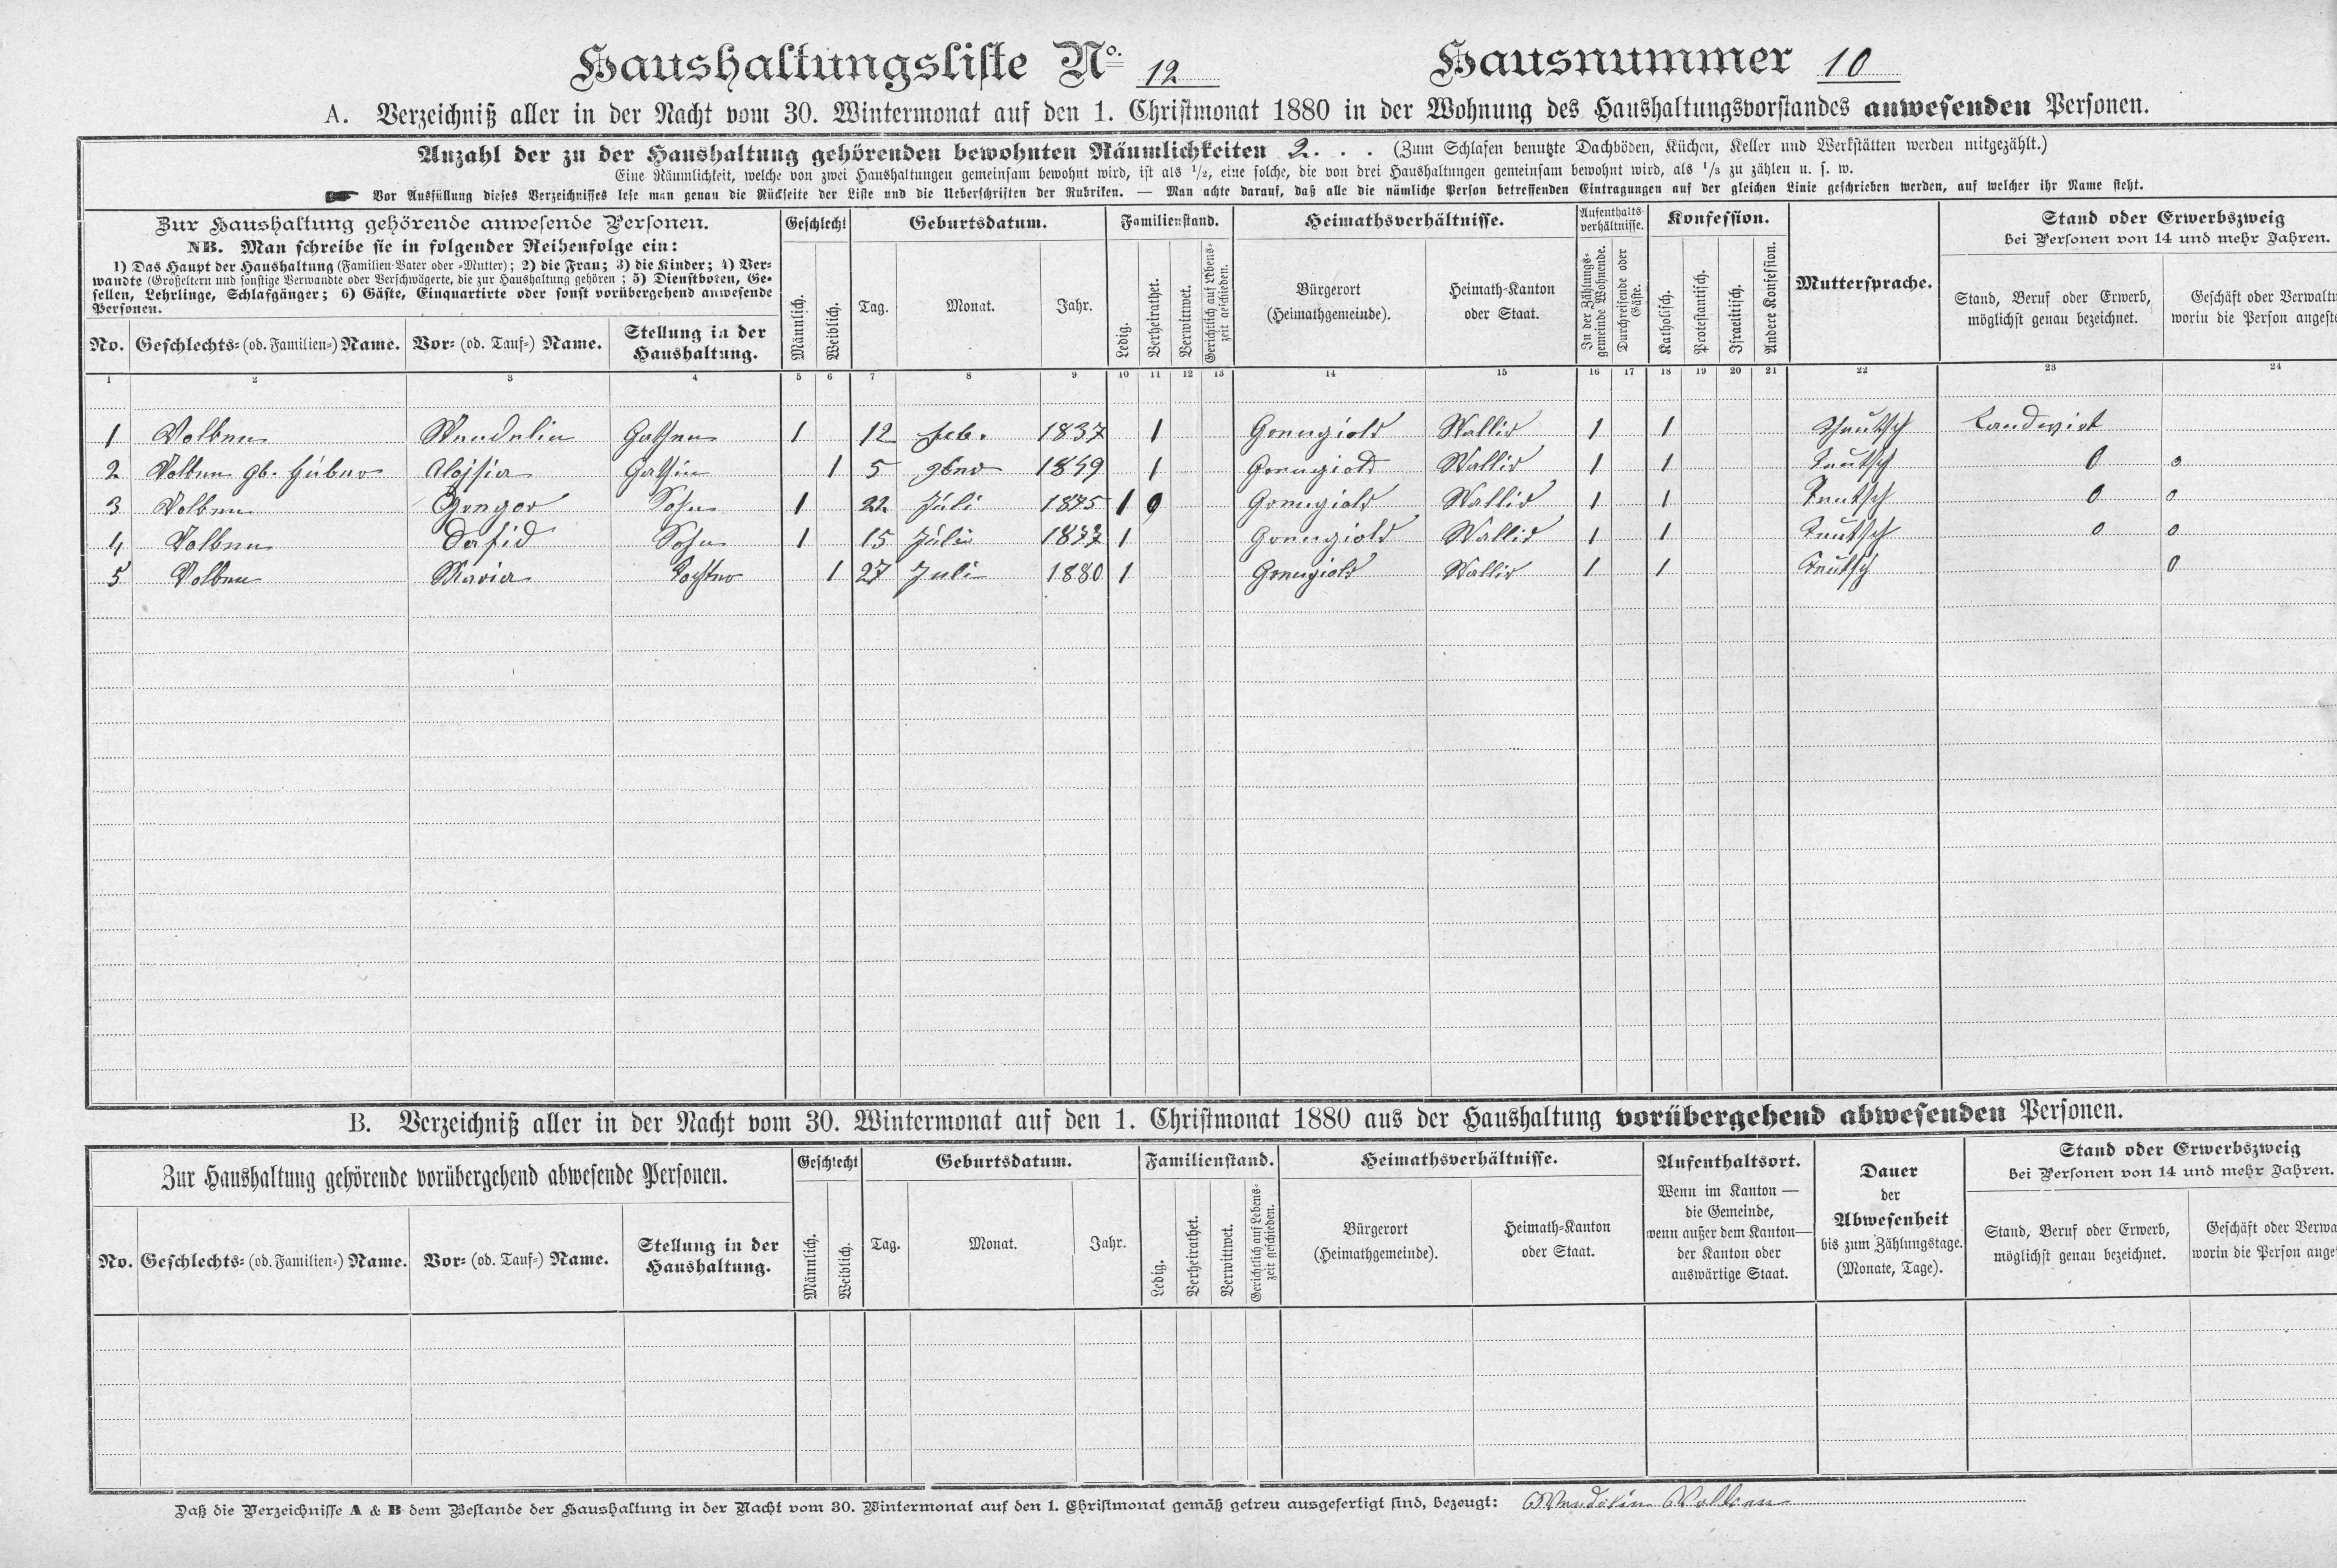 Haushaltungsliste No. 12 Hausnummer 10
A. Verzeichniß aller in der Nacht vom 30. Wintermonat auf den 1. Christmonat 1880 in der Wohnung des Haushaltungsvorstandes anwesenden Personen.
Anzahl der zu der Haushaltung gehörenden bewohnten Räumlichkeiten 2. . . (Zum Schlafen benutzte Dachböden, Küchen, Keller und Werkstätten werden mitgezählt.)
Eine Räumlichkeit, welche von zwei Haushaltungen gemeinsam bewohnt wird, ist als 1/2, eine solche, die von drei Haushaltungen gemeinsam bewohnt wird, als 1/3 zu zählen u. s. w.
Vor Ausfüllung dieses Verzeichnisses lese man genau die Rückseite der Liste und die Ueberschriften der Rubriken. — Man achte darauf, daß alle die nämliche Person betreffenden Eintragungen auf der gleichen Linie geschrieben werden, auf welcher ihr Name steht.
Zur Haushaltung gehörende anwesende Personen.
NB. Man schreibe sie in folgender Reihenfolge ein:
1) Das Haupt der Haushaltung (Familien-Vater oder -Mutter); 2) die Frau; 3) die Kinder; 4) Ver-
wandte (Großeltern und sonstige Verwandte oder Verschwägerte, die zur Haushaltung gehören; 5) Dienstboten, Ge-
sellen, Lehrlinge, Schlafgänger; 6) Gäste, Einquartirte oder sonst vorübergehend anwesende
Personen.
No. Geschlechts- (od. Familien-) Name. Vor- (od. Tauf-) Name. Stellung in der
Haushaltung.
Geschlecht
Männlich. Weiblich.
Geburtsdatum.
Tag. Monat. Jahr.
Familienstand.
Ledig. Verheirathet. Verwittwet. Gerichtlich auf Lebens-
zeit geschieden.
Heimathsverhältnisse.
Bürgerort
(Heimathgemeinde).
Heimath-Kanton
oder Staat.
Aufenthalts-
verhältnisse.
In der Zählungs-
gemeinde Wohnende.
Durchreisende oder
Gäste.
Konfession.
Katholisch. Protestantisch. Israelitisch. Andere Konfession.
Muttersprache.
Stand oder Erwerbszweig
bei Personen von 14 und mehr Jahren.
Stand, Beruf oder Erwerb,
möglichst genau bezeichnet.
Geschäft oder Verwaltu
worin die Person angeste
1 2 3 4 5 6 7 8 9 10 11 12 13 14 15 16 17 18 19 20 21 22 23 24
1 Volken Wendelin Gatten 1 12 Feb. 1837 1 Grengiols Wallis 1 1 Theutsch Landwirt
2 Volken gb. Huber Alojsia Gattin 1 5 9ber 1849 1 Grengiols Wallis 1 1 Teutsch 0 0
3 Volken Gregor Sohn 1 22 Juli 1875 1 0 Grengiols Wallis 1 1 Teutsch 0 0
4 Volken Dafid Sohn 1 15 Juli 1877 1 Grengiols Wallis 1 1 Teutsch 0 0
5 Volken Maria Tochter 1 27 Juli 1880 1 Grengiols Wallis 1 1 Teutsch 0
B. Verzeichniß aller in der Nacht vom 30. Wintermonat auf den 1. Christmonat 1880 aus der Haushaltung vorübergehend abwesenden Personen.
Zur Haushaltung gehörende vorübergehend abwesende Personen.
No. Geschlechts- (od. Familien-) Name. Vor- (od. Tauf-) Name. Stellung in der
Haushaltung.
Geschlecht
Männlich. Weiblich.
Geburtsdatum.
Tag. Monat. Jahr.
Familienstand.
Ledig. Verheirathet. Verwittwet. Gerichtlich auf Lebens-
zeit geschieden.
Heimathsverhältnisse.
Bürgerort
(Heimathgemeinde).
Heimath-Kanton
oder Staat.
Aufenthaltsort.
Wenn im Kanton —
die Gemeinde,
wenn außer dem Kanton—
der Kanton oder
auswärtige Staat.
Dauer
der
Abwesenheit
bis zum Zählungstage.
(Monate, Tage).
Stand oder Erwerbszweig
bei Personen von 14 und mehr Jahren.
Stand, Beruf oder Erwerb,
möglichst genau bezeichnet.
Geschäft oder Verwa
worin die Person ange
Daß die Verzeichnisse A & B dem Bestande der Haushaltung in der Nacht vom 30. Wintermonat auf den 1. Christmonat gemäß getreu ausgefertigt sind, bezeugt: Wendelin Volken